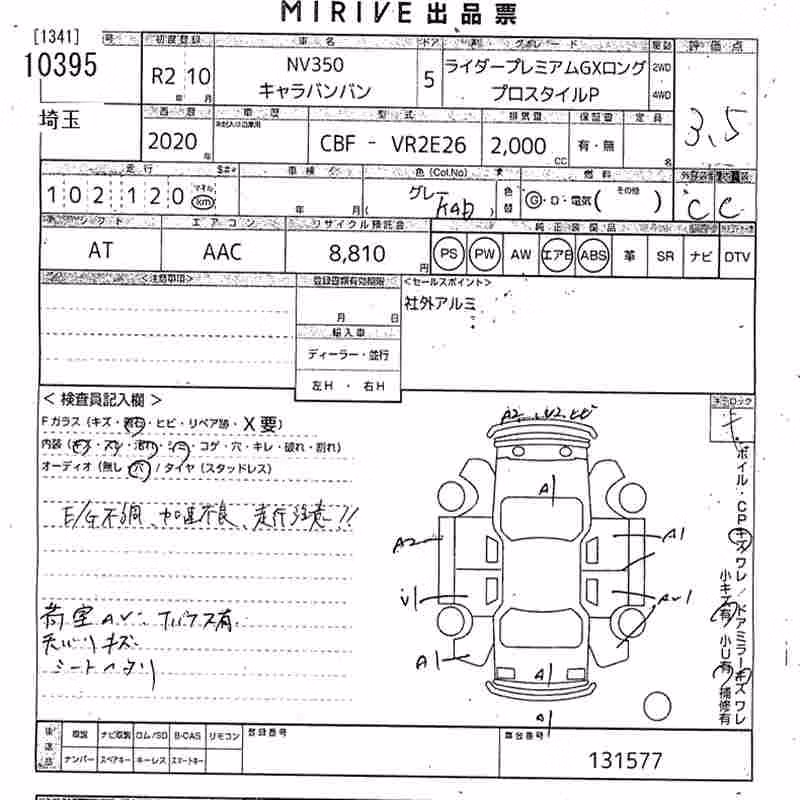 MIRIVE 出品票
[1341] 号 初度登録 車名 ドア 形状・グレード 駆動 評価点
10395 R2 10 年 月 NV350 キャラバンバン 5 ライダープレミアムGXロング プロスタイルP 2WD 4WD 3.5
埼玉 西暦 車歴 型式 排気量 保証書 定員
2020 年 CBF - VR2E26 2,000 CC 有・無 名
走行 車検 色 (Col.No) 燃料 外装 内装
102120 マイル km 年 月 グレー( KAD ) 色替 G・D・電気( その他 ) C C
シフト エアコン リサイクル預託金 純正装備品
AT AAC 8,810 円 PS PW AW エアB ABS 革 SR ナビ DTV
<注意事項> 登録書類有効期限 <セールスポイント>
月 日 社外アルミ
輸入車
ディーラー・並行
左H ・ 右H
< 検査員記入欄 >
Fガラス (キズ・飛石・ヒビ・リペア跡・X要)
内装 (キズ・スレ・汚れ・シミ・コゲ・穴・キレ・破れ・割れ)
オーディオ (無し・穴) / タイヤ (スタッドレス)
E/G不調、加速不良、走行注意!!
荷室AV.
キズ
シートヘタリ
A2 V2 ヒビ
A1
A2
A1
V1
AV1
A1
A1
A1
ホイル・CPキズワレ/ドアミラーキズワレ
小キズ有 小U有 補修有
後送品 取説 ナビ取説 ロム/SD B-CAS リモコン 登録番号 車台番号
ナンバー スペアキー キーレス スマートキー 131577